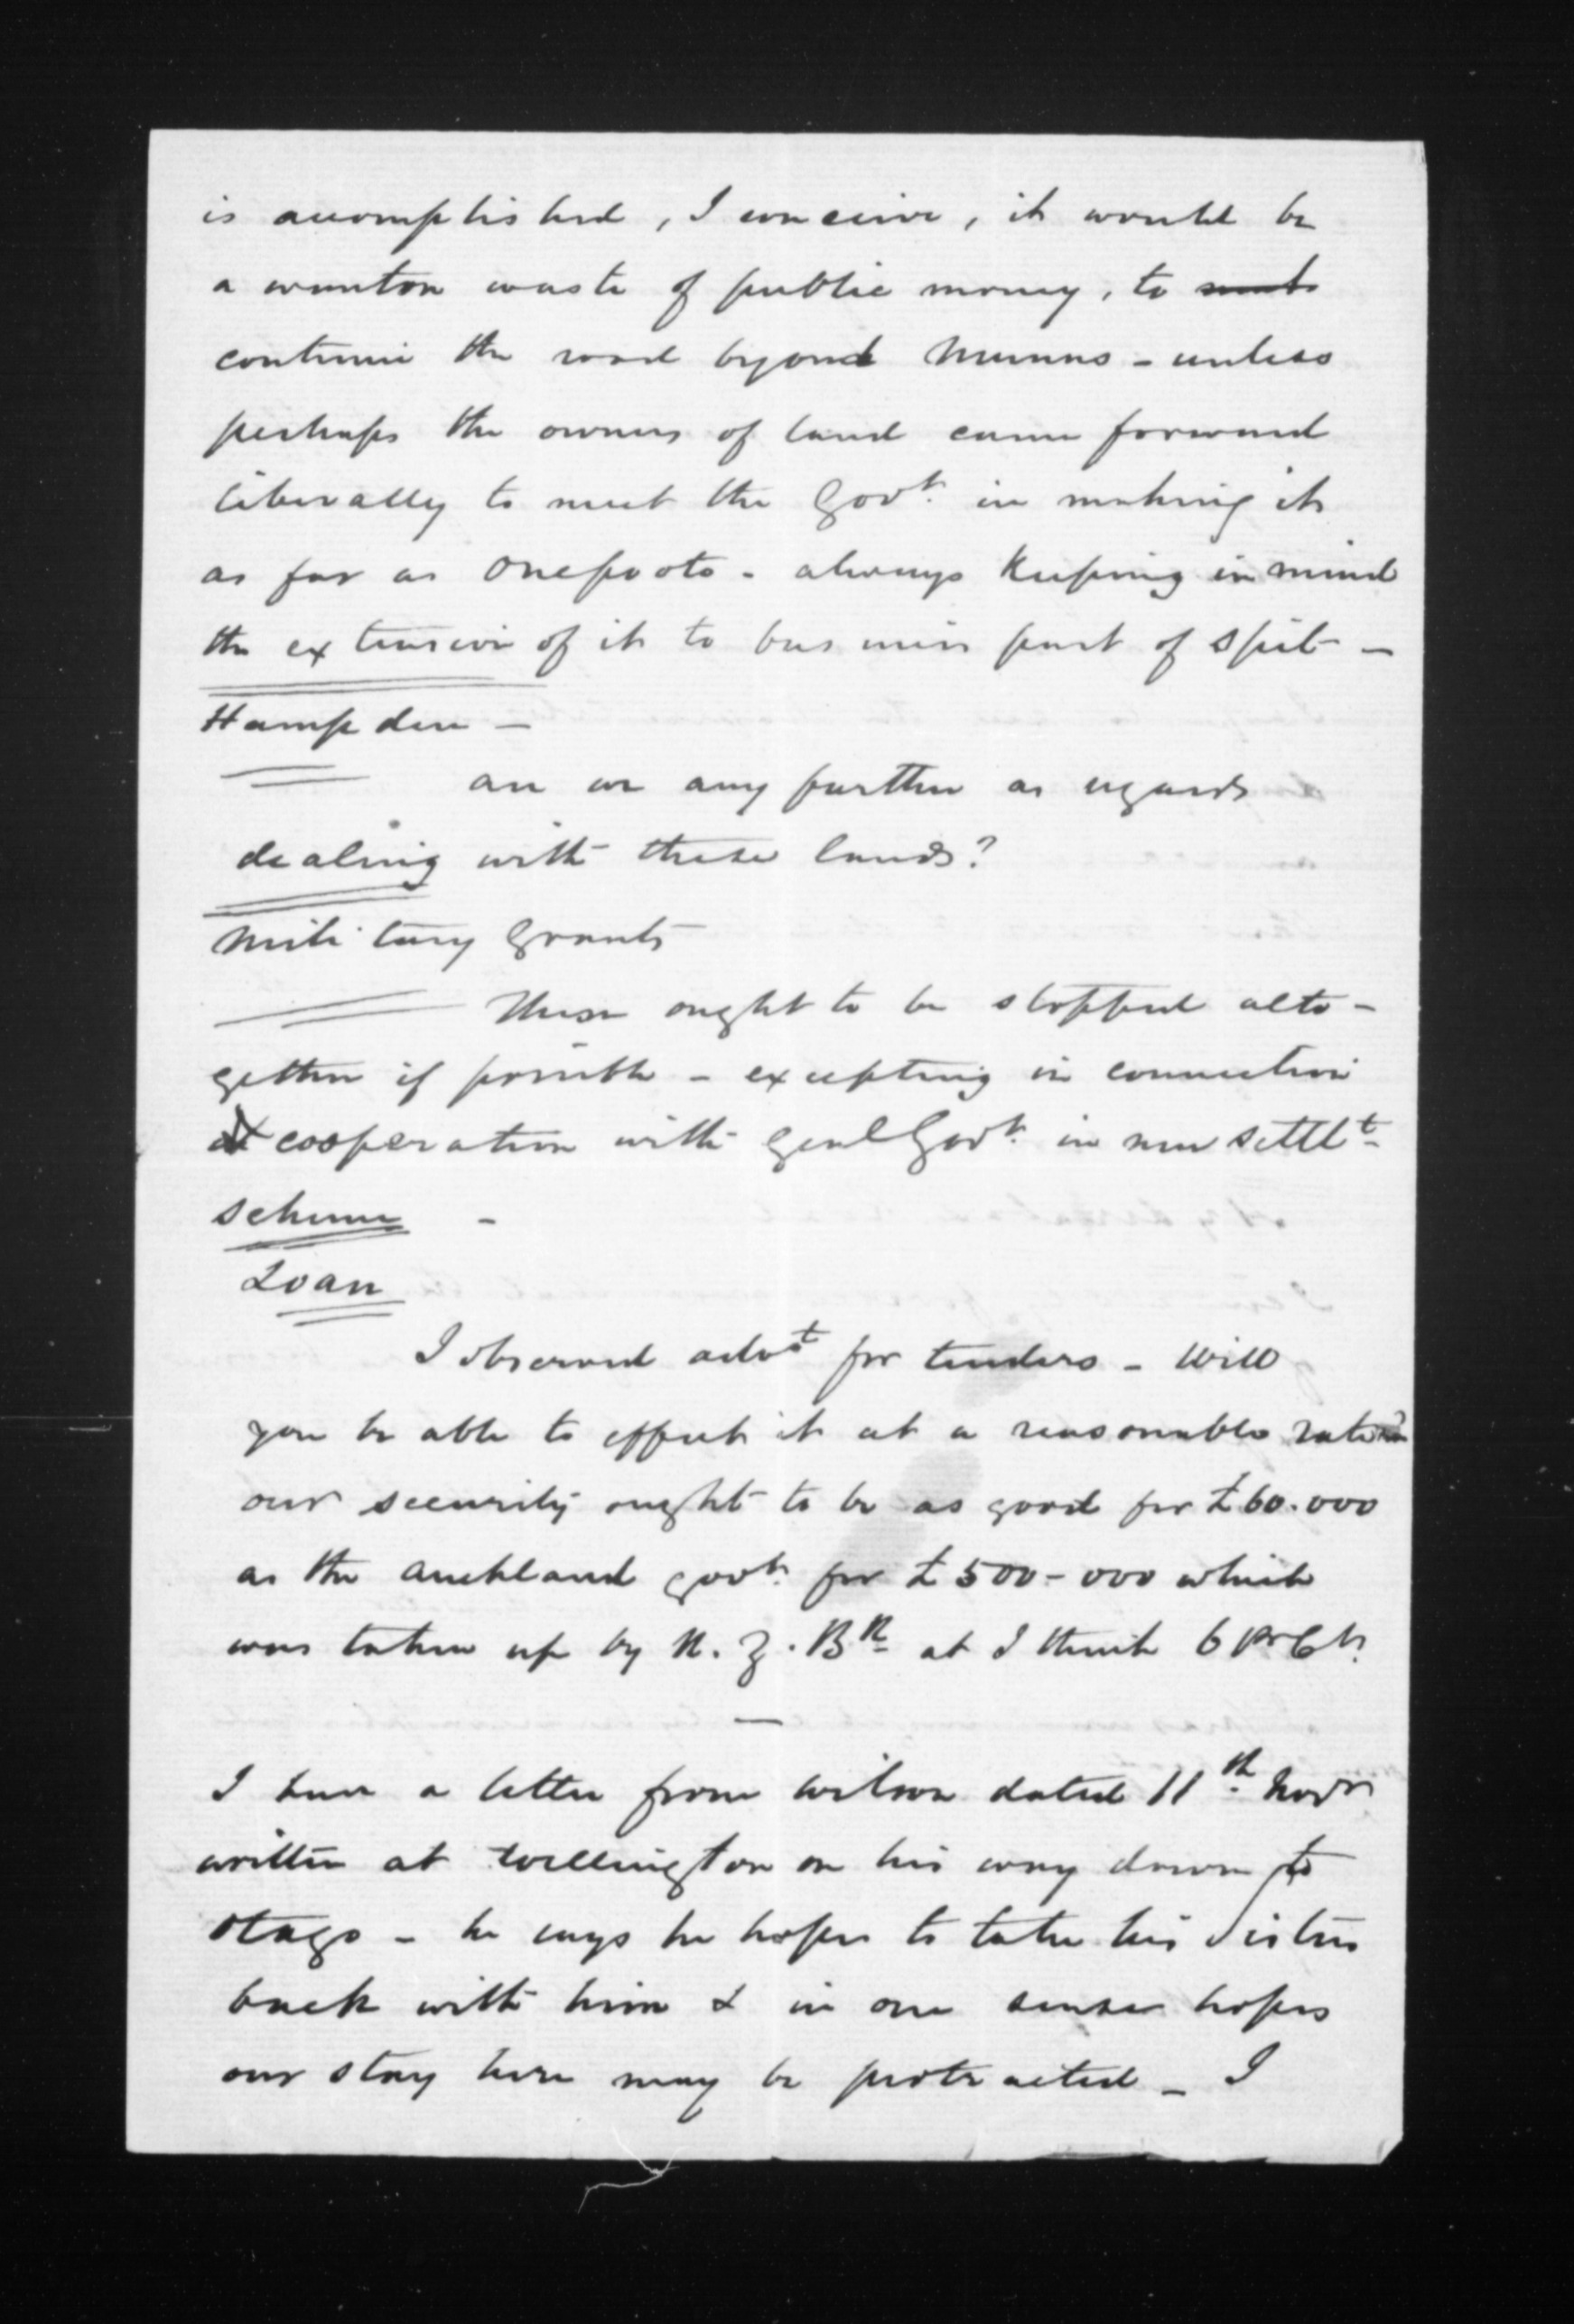 is accomplished, I conceive, it would be
a wanton waste of public money, to
continue the road beyond Munns - unless
perhaps the owners of land came forward
liberally to meet the Govt. in making it
as far as Onepoto - always keeping in mind
the extension of it to business part of Spit -
Hampden -
are we any further as regards
dealing with these lands?
Military Grants
These ought to be stopped alto-
gether if possible - excepting in connection
& cooperation with Genl Govt. in new settlt-
scheme -
Loan
I observed advt for tenders - Will
you be able to effect it at a reasonable rate?
our security ought to be as good for £60.000
as the Auckland govt. for £500-000 which
was taken up by N. Z. Bk at I think 6 Pr Ct.
I have a letter from Wilson dated 11th Novr
written at Wellington on his way down to
Otago - he says he hopes to take his Sisters
back with him & in one sense hopes
our stay here may be protracted - I